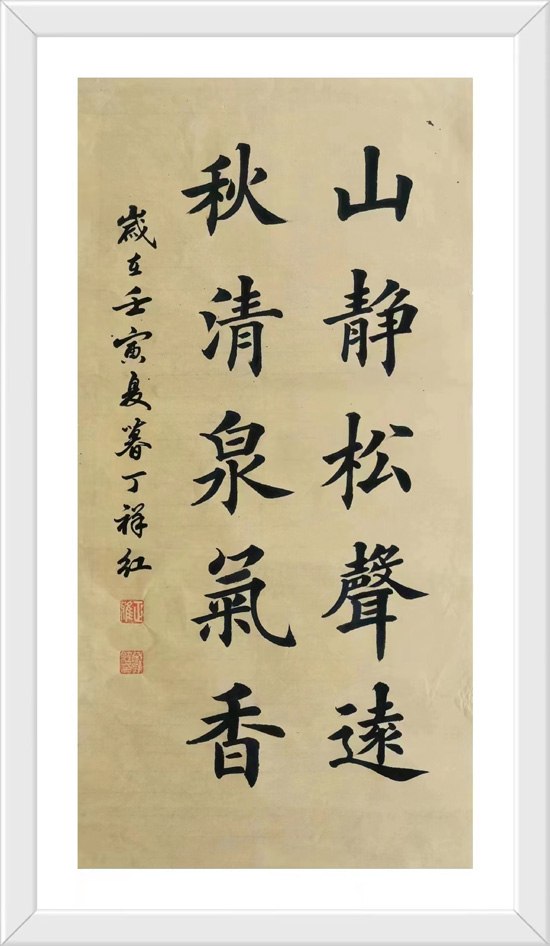 山静松聲遠
秋清泉氣香
歲在壬寅夏暮丁祥红